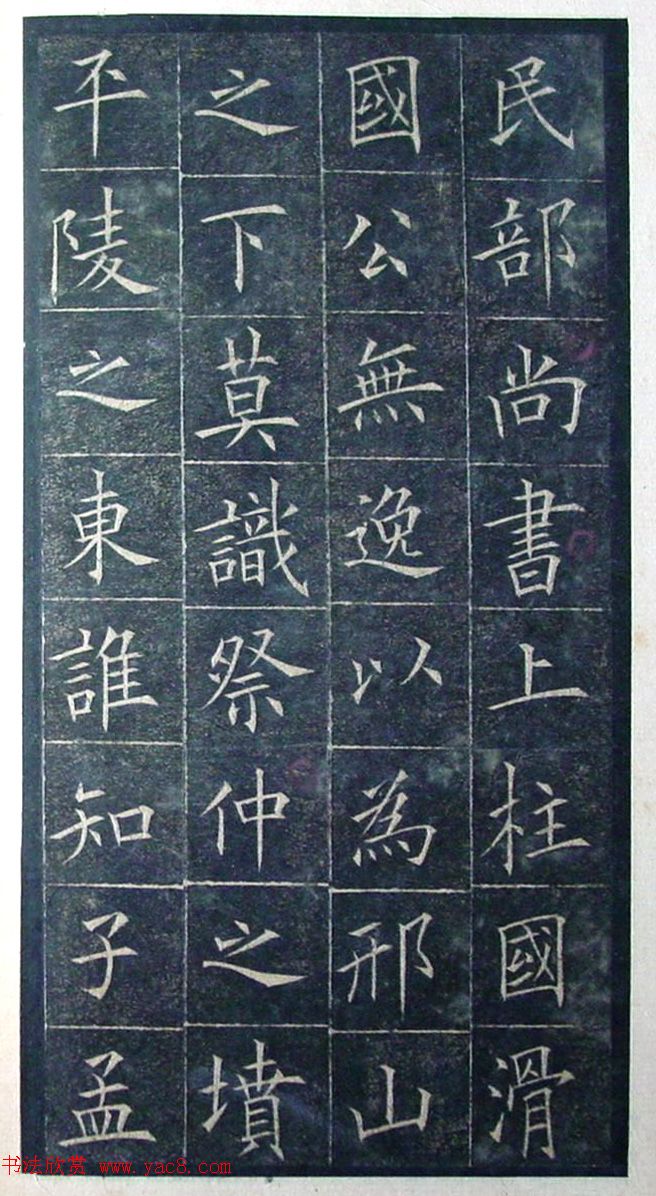 民部尚書上柱國滑
國公無逸以為邢山
之下莫識祭仲之墳
平陵之東誰知子孟
书法欣赏 www.yac8.com